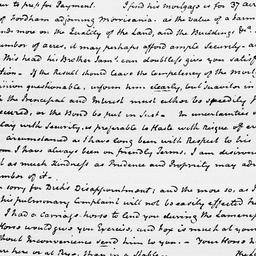 er to press for Payment. I find his Mortgage is for 37 acr
of Fordham adjoining Morrisania. as the value of a farm
ends more on the Quality of the Land, and the Buildings &c. th
umber of acres, it may perhaps afford ample Security. a
This head his Brother Jam.s can doubtless give you satisf
tion. If the Result should leave the Competency of the Mortg
inion questionable, inform him clearly, but Suaviter in
te the Principal and Interest must either be speedily
ecured, or the Bond be put in Suit. In uncertainties
elay with Security, is preferable to Haste with risque of ev
circumstanced as I have long been with Respect to his
om I have always been on friendly Terms. I am desirous
t as much Kindness as Prudence and Propriety may adm
umber of it.
sorry for Dick's Disappointment; and the more so, as I
his pulmonary Complaint will not be easily effected
I had a Carriage-horse to lend you during the Lameness
Horse would give you Exercise, and Hop is much at you
without Inconveniences send him to you. Your Horse
here or at Rye, than in a Stable